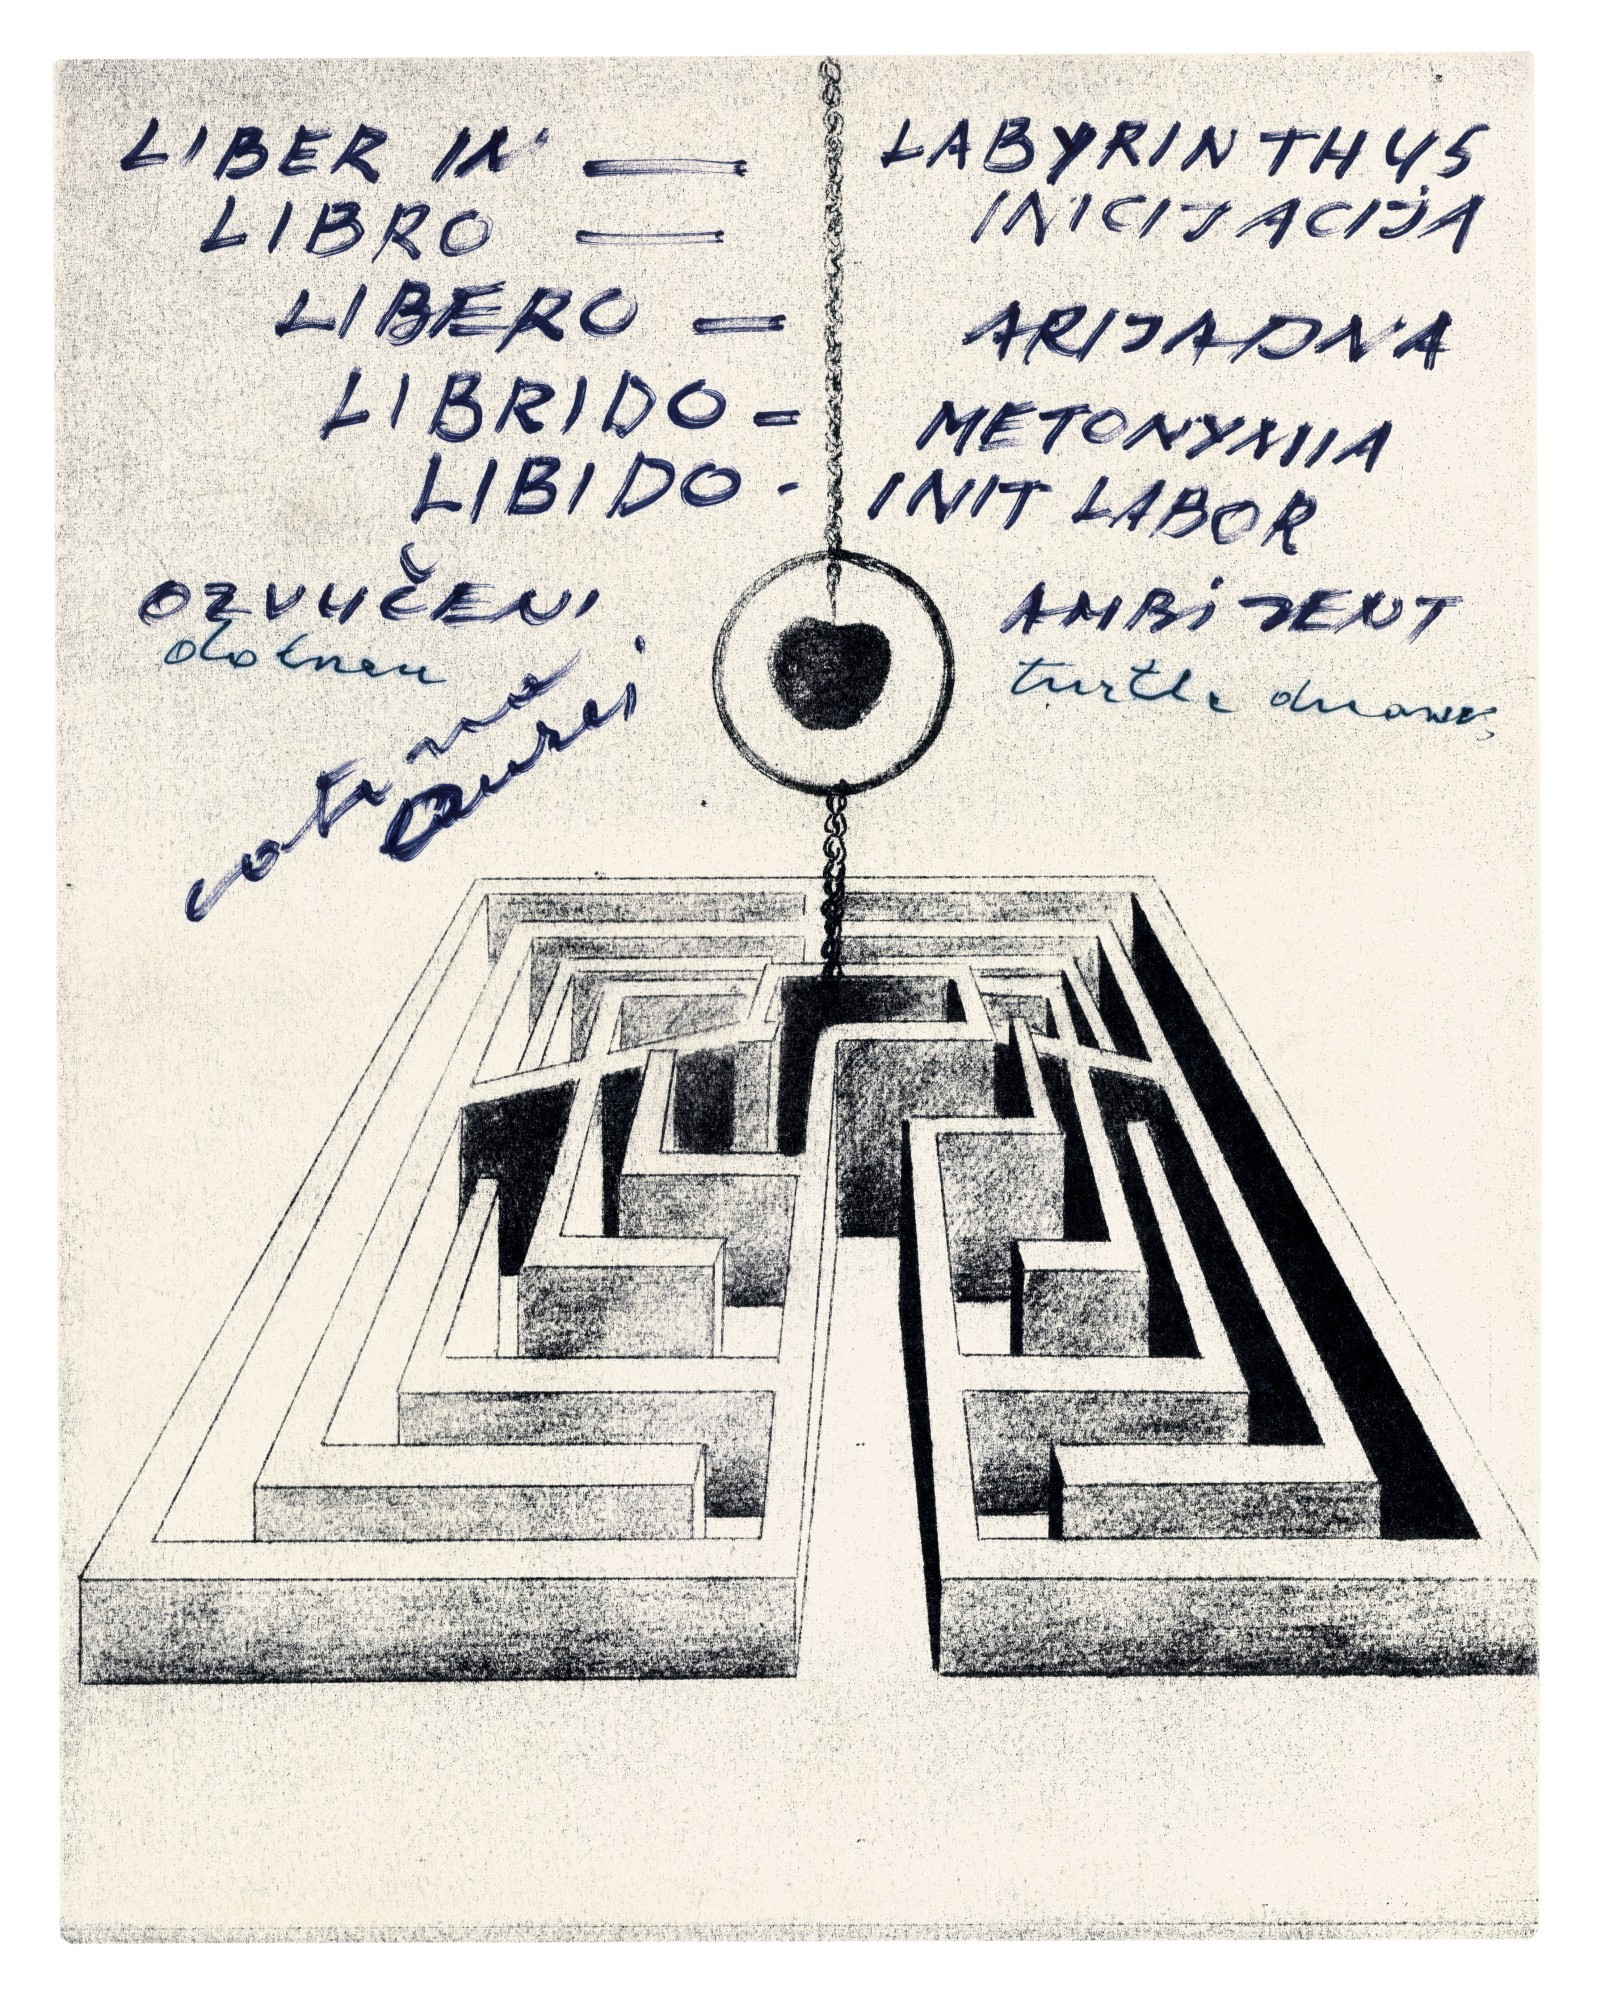 LIBER IN = LABYRINTHUS
LIBRO = INICIJACIJA
LIBERO = ARIJADNA
LIBRIDO = METONYMIIA
LIBIDO - INIT LABOR
OZVUČENI AMBIJENT
turtle